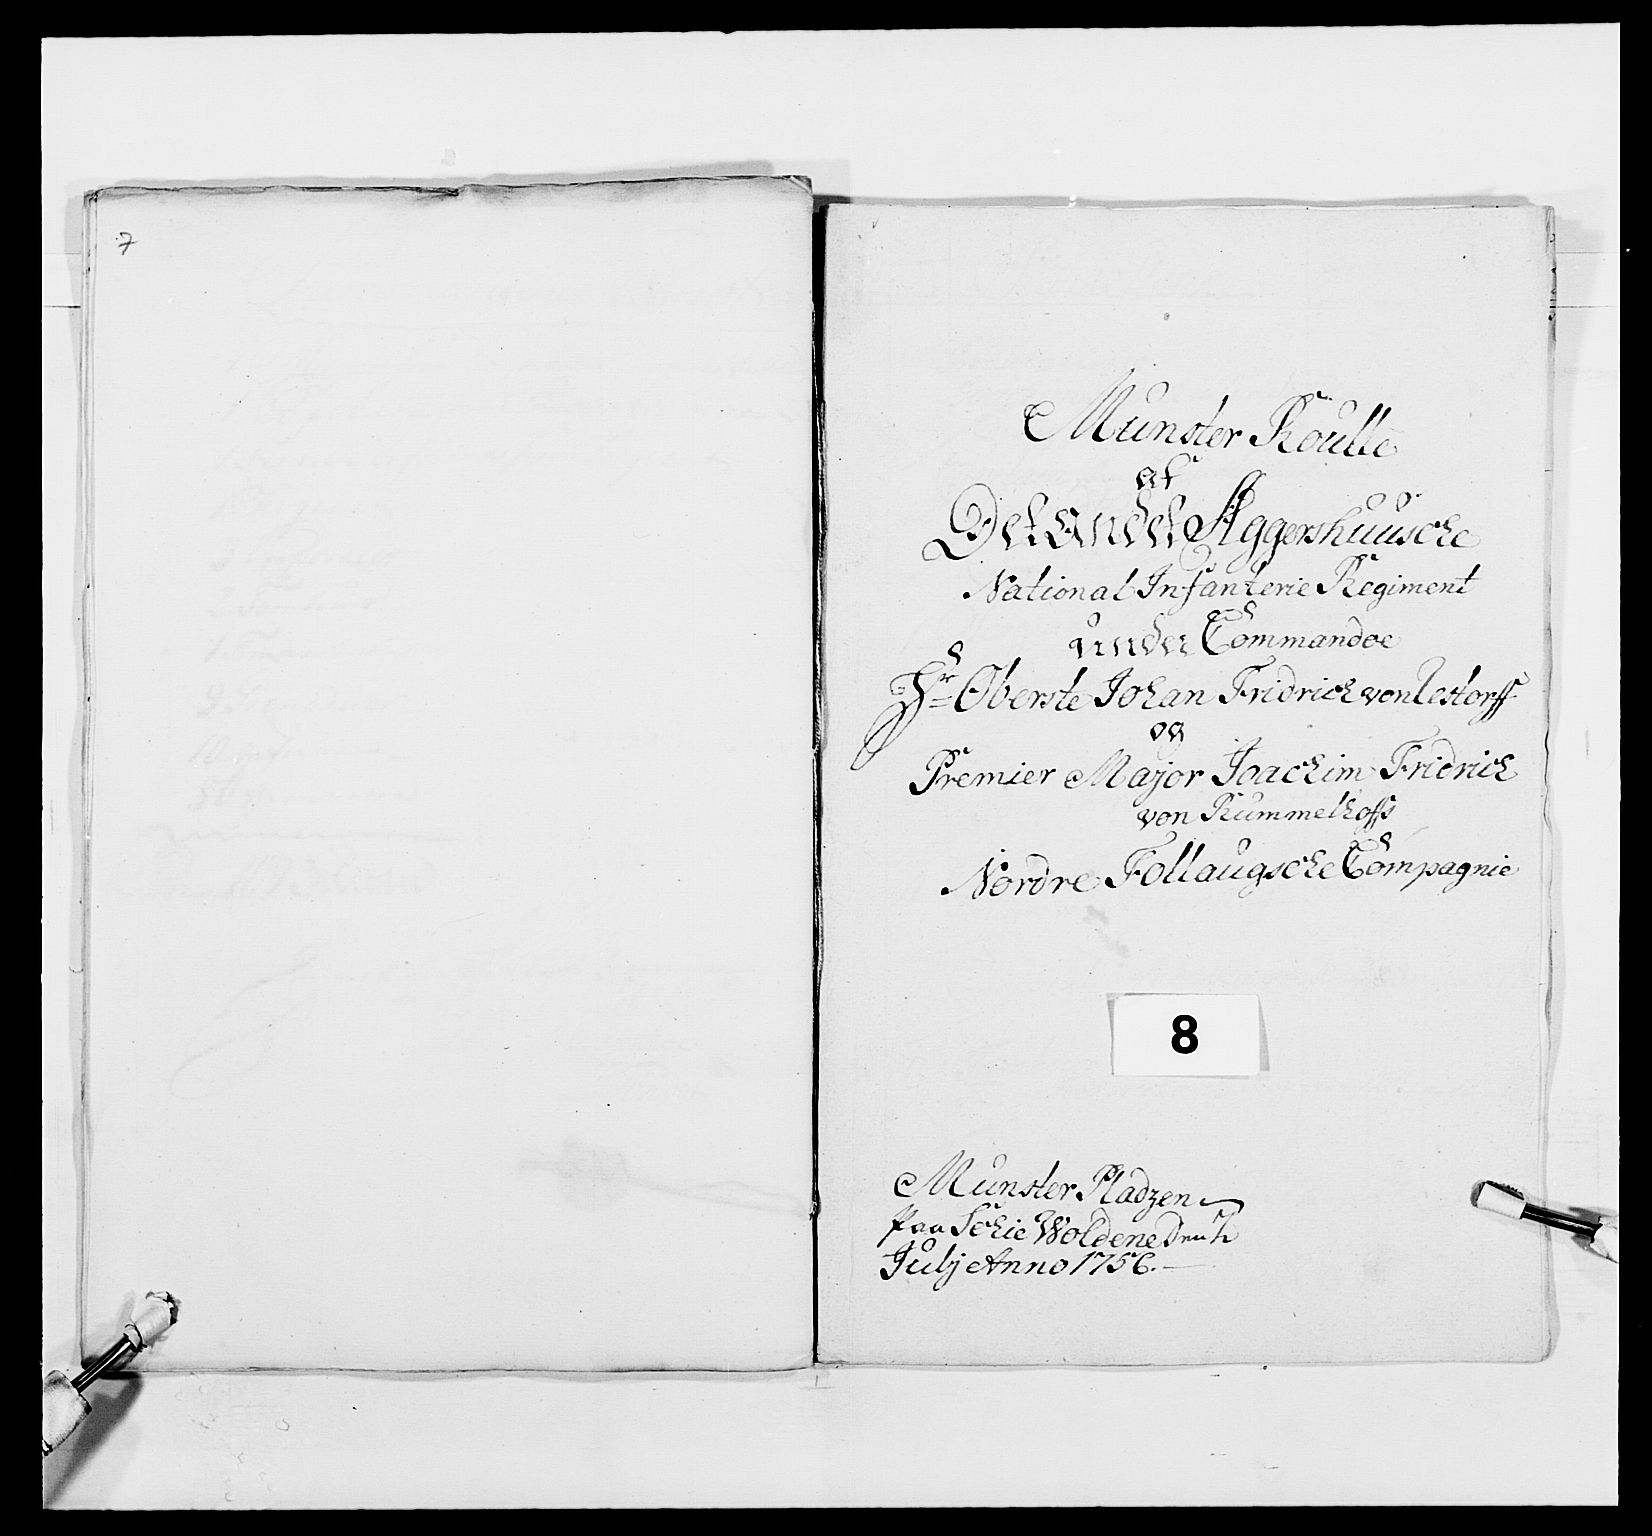 7
Munster Roulle
af
Det Andet Aggershuusche
National Infanterie Regiment
under Commandoe
Hr Oberste Johan Fridrich von Lestorff
og
Premier Major Joachim Fridrich
von Rummelhoffs
Nordre Follaugsche Compagnie
8
Munster Pladzen
Paa Schie Woldene
Julj Anno 1756.